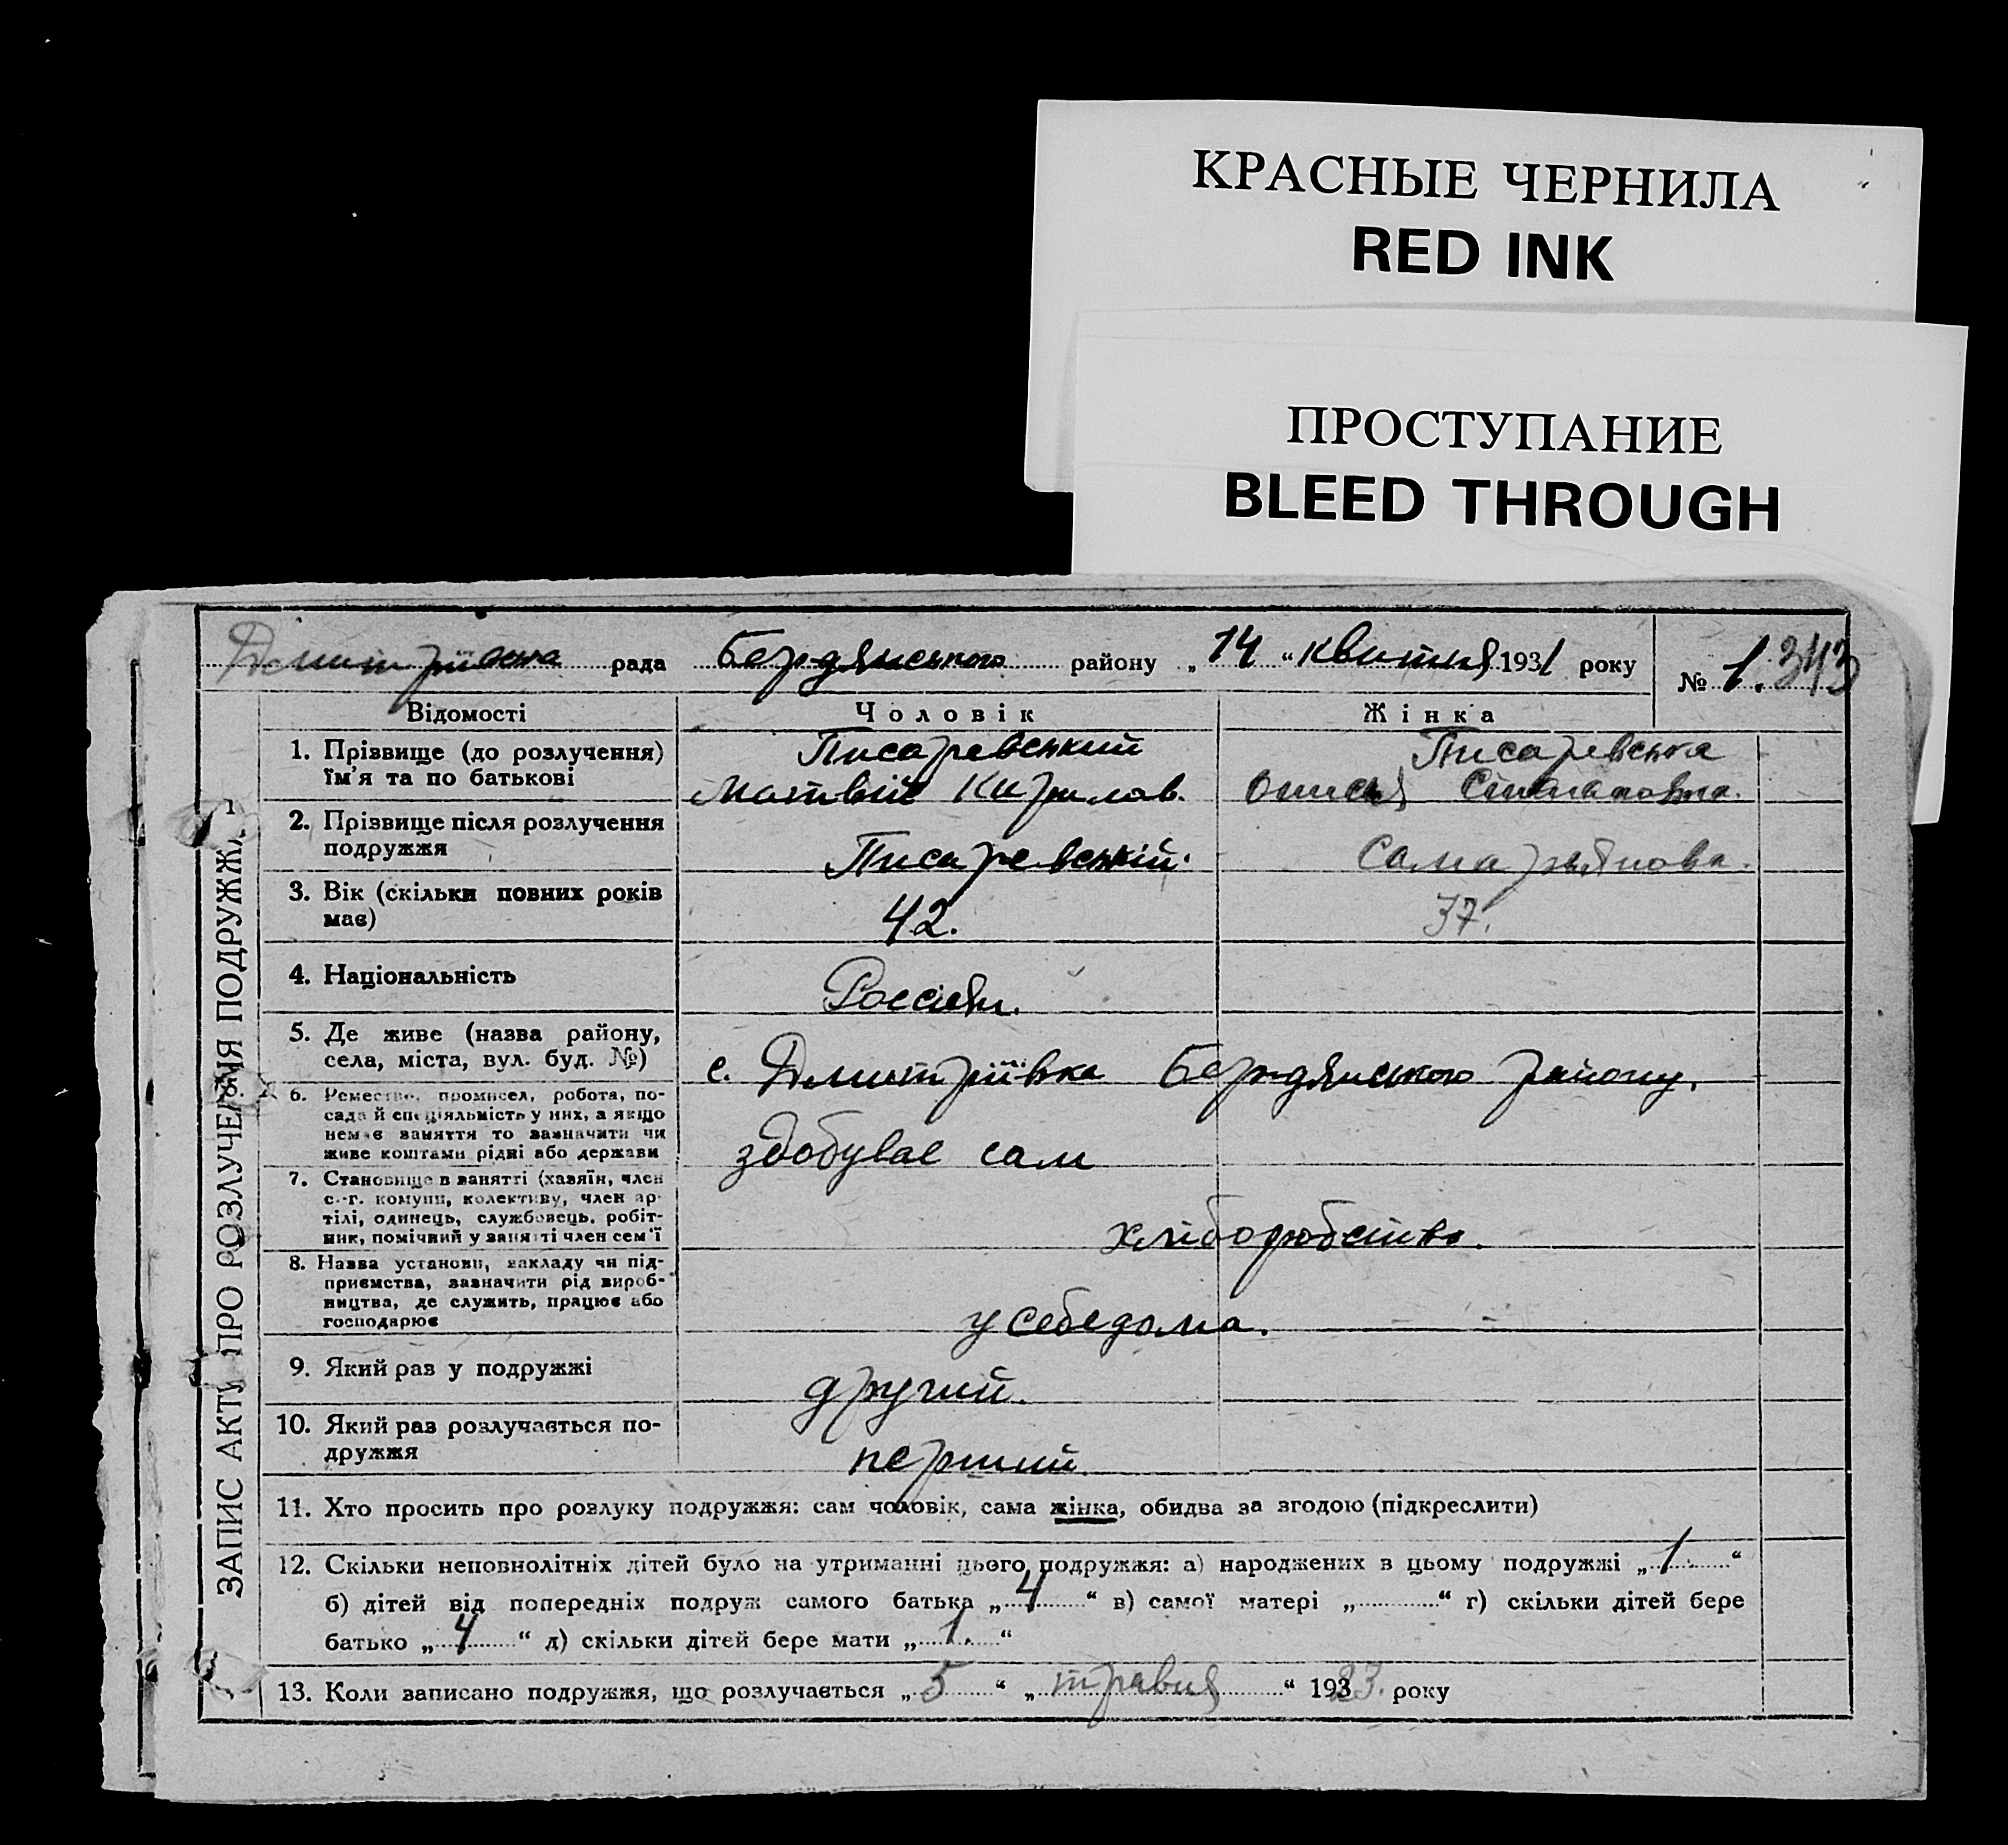 КРАСНЫЕ ЧЕРНИЛА
RED INK
ПРОСТУПАНИЕ
BLEED THROUGH
рада Бердянського району „14“ квитня 1931 року
№ 1. 343
ЗАПИС АКТУ ПРО РОЗЛУЧЕННЯ ПОДРУЖЖЯ
Відомості Чоловік Жінка
1. Прізвище (до розлучення) Писаревський Писаревська
їм'я та по батькові Матвій Кирилов.
2. Прізвище після розлучення
подружжя Писаревській.
3. Вік (скільки повних років
має) 42. 37.
4. Національність
Россіян.
5. Де живе (назва району,
села, міста, вул. буд. №) с. Дмитріївка Бердянського району.
6. Ремество, промисел, робота, по-
сада й спеціяльмість у них, а якщо
немає заняття то зазначити чи
живе коштами рідні або держави здобуває сам
7. Становище в занятті (хазяїн, член
с.-г. комуни, колективу, член ар-
тілі, одинець, службовець, робіт-
ник, помічний у занятті член сем'ї хліборобство.
8. Назва установи, закладу чи під-
приємства, зазначити рід вироб-
ництва, де служить, працює або
господарює у себе дома.
9. Який раз у подружжі другий.
10. Який раз розлучається по-
дружжя перший
11. Хто просить про розлуку подружжя: сам чоловік, сама жінка, обидва за згодою (підкреслити)
12. Скільки неповнолітніх дітей було на утриманні цього подружжя: а) народжених в цьому подружжі „1.“
б) дітей від попередніх подруж самого батька „4“ в) самої матері „ “ г) скільки дітей бере
батько „4“ д) скільки дітей бере мати „1.“
13. Коли записано подружжя, що розлучається „5“ „травня“ 1923. року